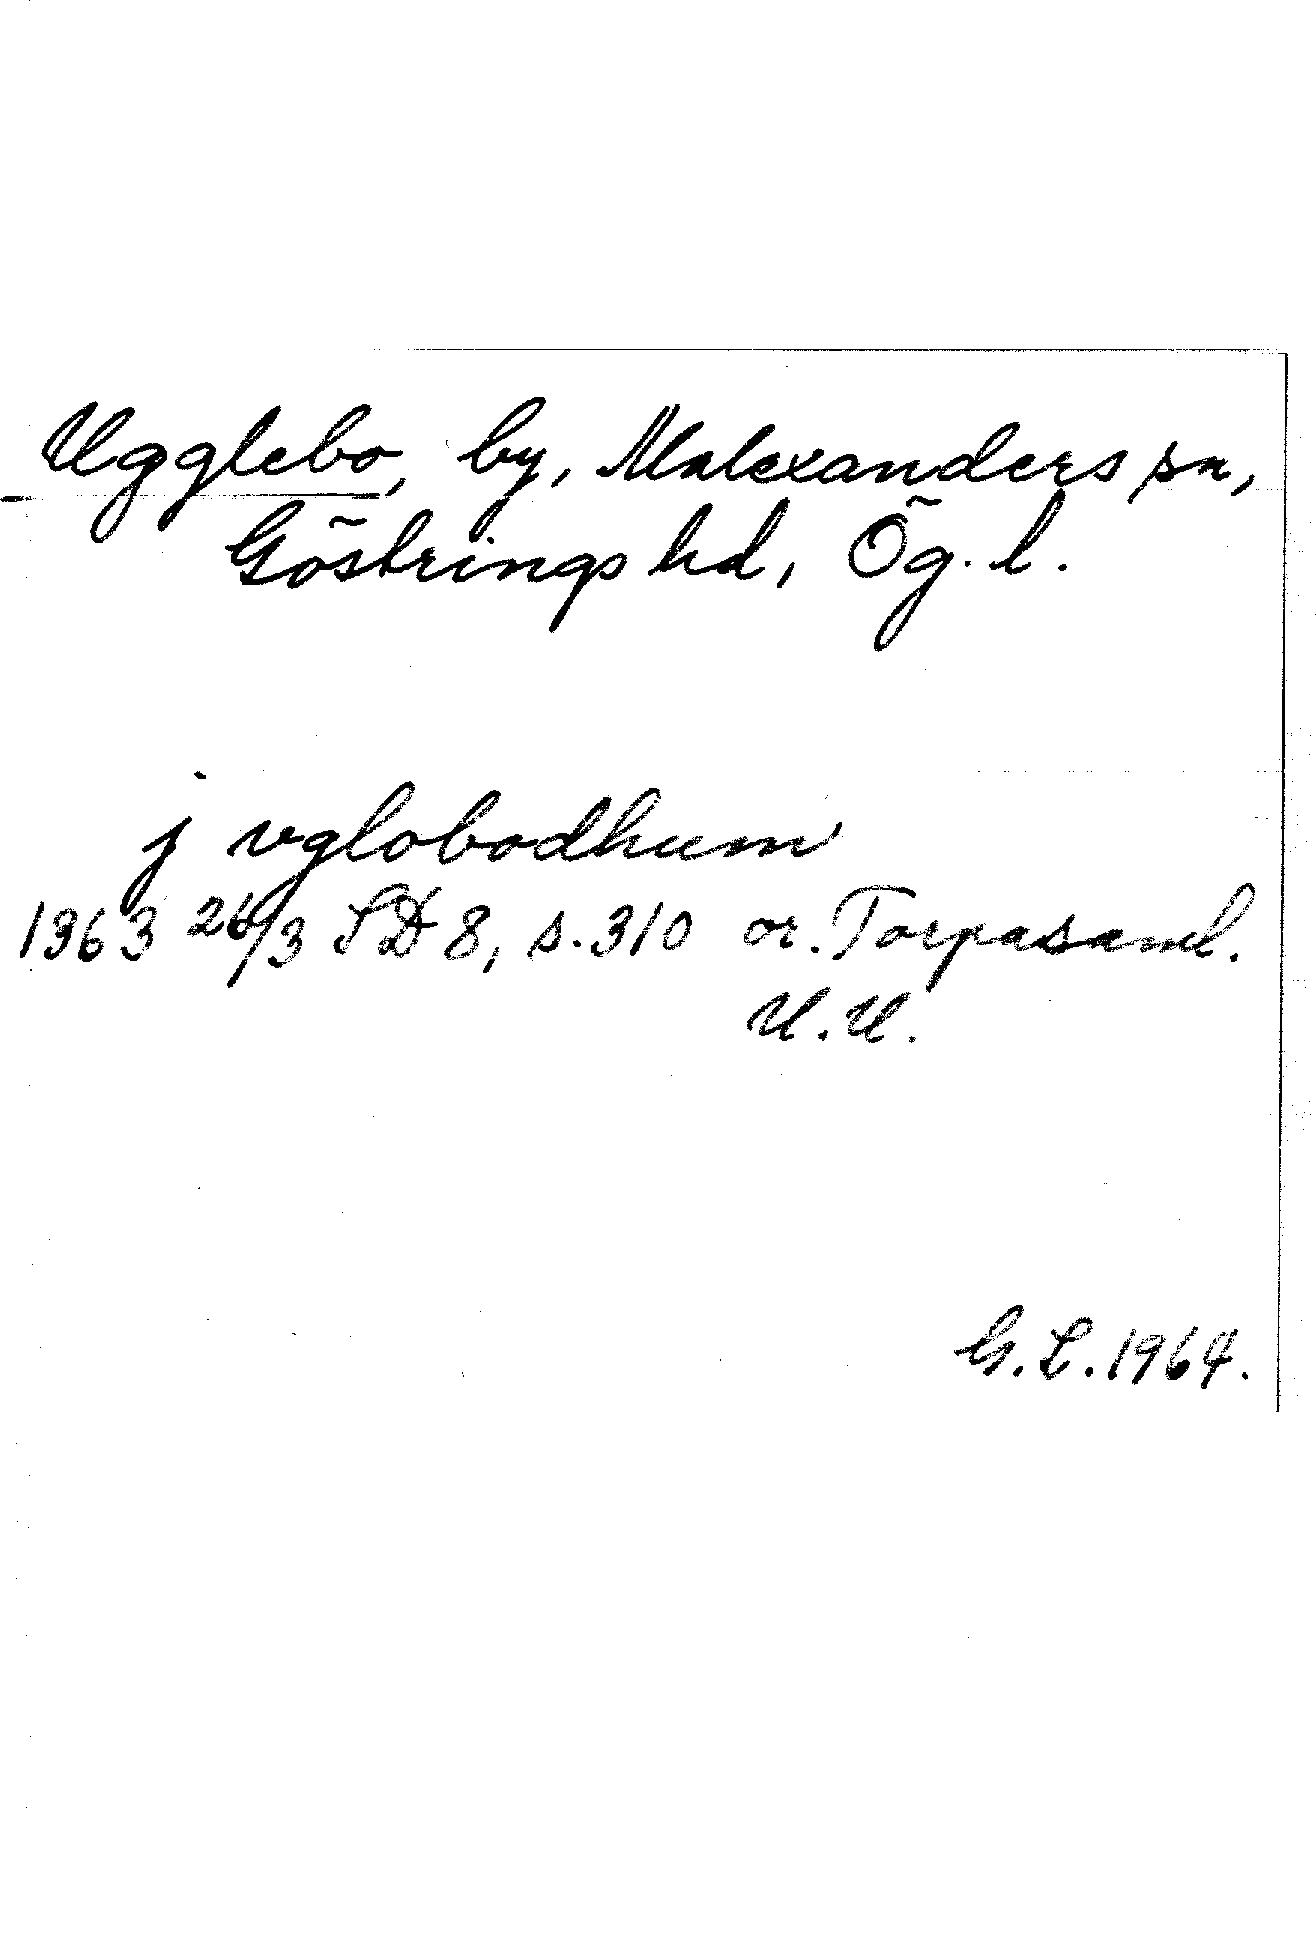 Ugglebo, by, Malexanders sn,
Göstrings hd, Ög. l.
j vglobodhum
1363 26/3 SD 8, s. 310 or. Torpasaml.
U.U.
G.L. 1964.